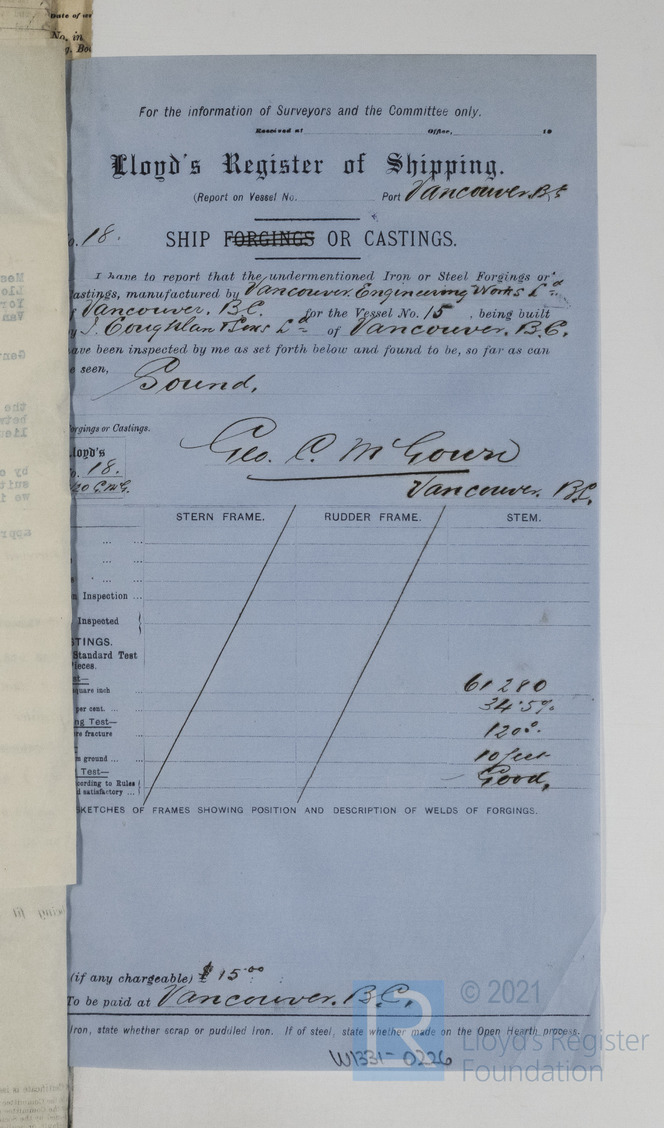 Date of
No. in
For the information of Surveyors and the Committee only.
Received at Office, 19
Lloyd's Register of Shipping.
(Report on Vessel No. Port Vancouver. B.C.
18.
SHIP FORGINGS OR CASTINGS.
I have to report that the undermentioned Iron or Steel Forgings or
Castings, manufactured by Vancouver Engineering Works Ld
Vancouver. B.C. for the Vessel No. 15 , being built
J. Coughlan & Sons Ld of Vancouver. B.C.
have been inspected by me as set forth below and found to be, so far as can
seen,
Sound,
Forgings or Castings.
Lloyd's
18.
Geo. C. McGown
Vancouver. B.C.
STERN FRAME. RUDDER FRAME. STEM.
Inspection ...
Inspected
Standard Test
61280
square inch
per cent. ... 34.5%
Test—
fracture 120°.
ground ... 10 feet
Test— Good,
according to Rules
satisfactory ...
SKETCHES OF FRAMES SHOWING POSITION AND DESCRIPTION OF WELDS OF FORGINGS.
(if any chargeable) $ 15.00
To be paid at Vancouver. B.C.
© 2021
iron, state whether scrap or puddled iron. If of steel, state whether made on the Open Hearth process.
Lloyd's Register
Foundation
W1331-0226